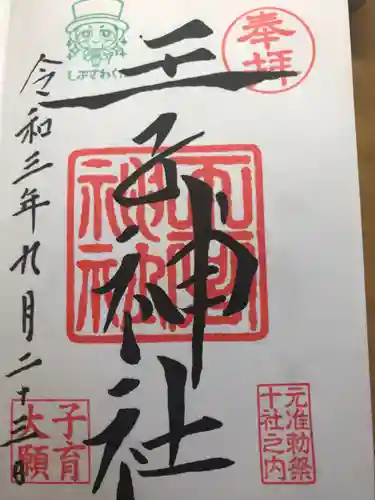 奉拝
しぶさわくん
王子神社
王子神社
元准勅祭
十社之内
令和三年九月二十三日
子育
大願